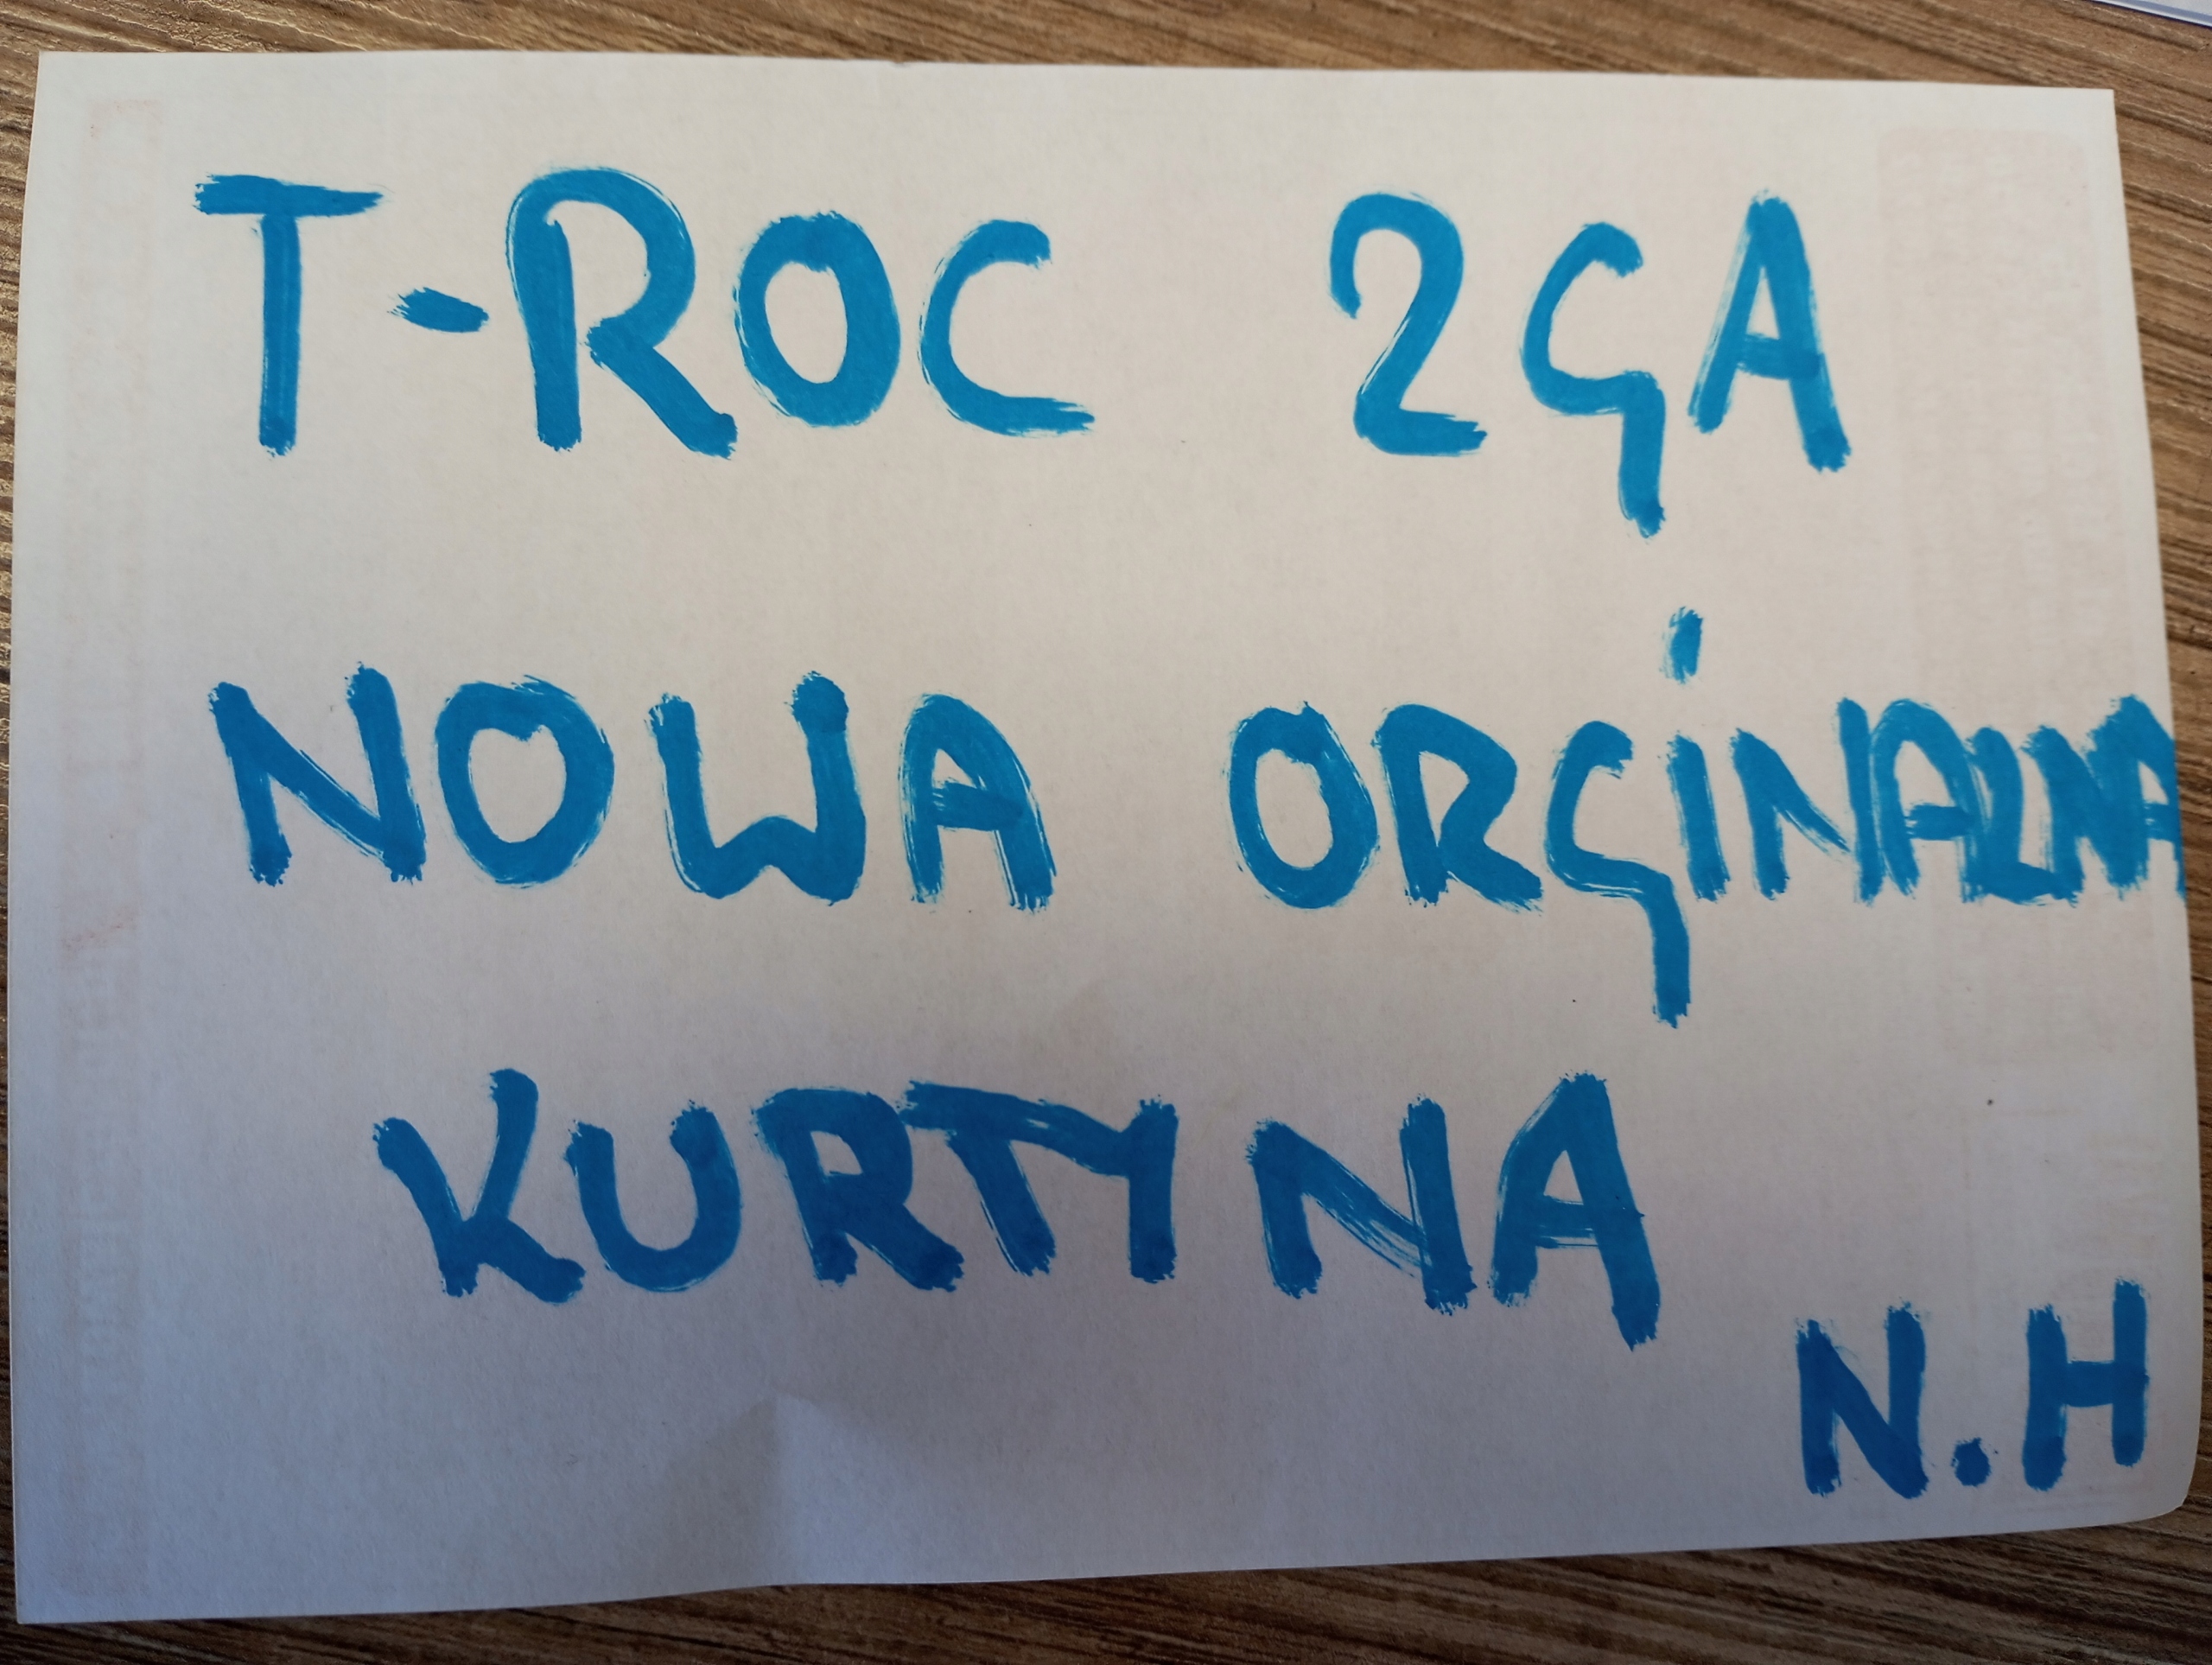 T-ROC 2GA
NOWA ORGiNALNA
KURTYNA
N.H